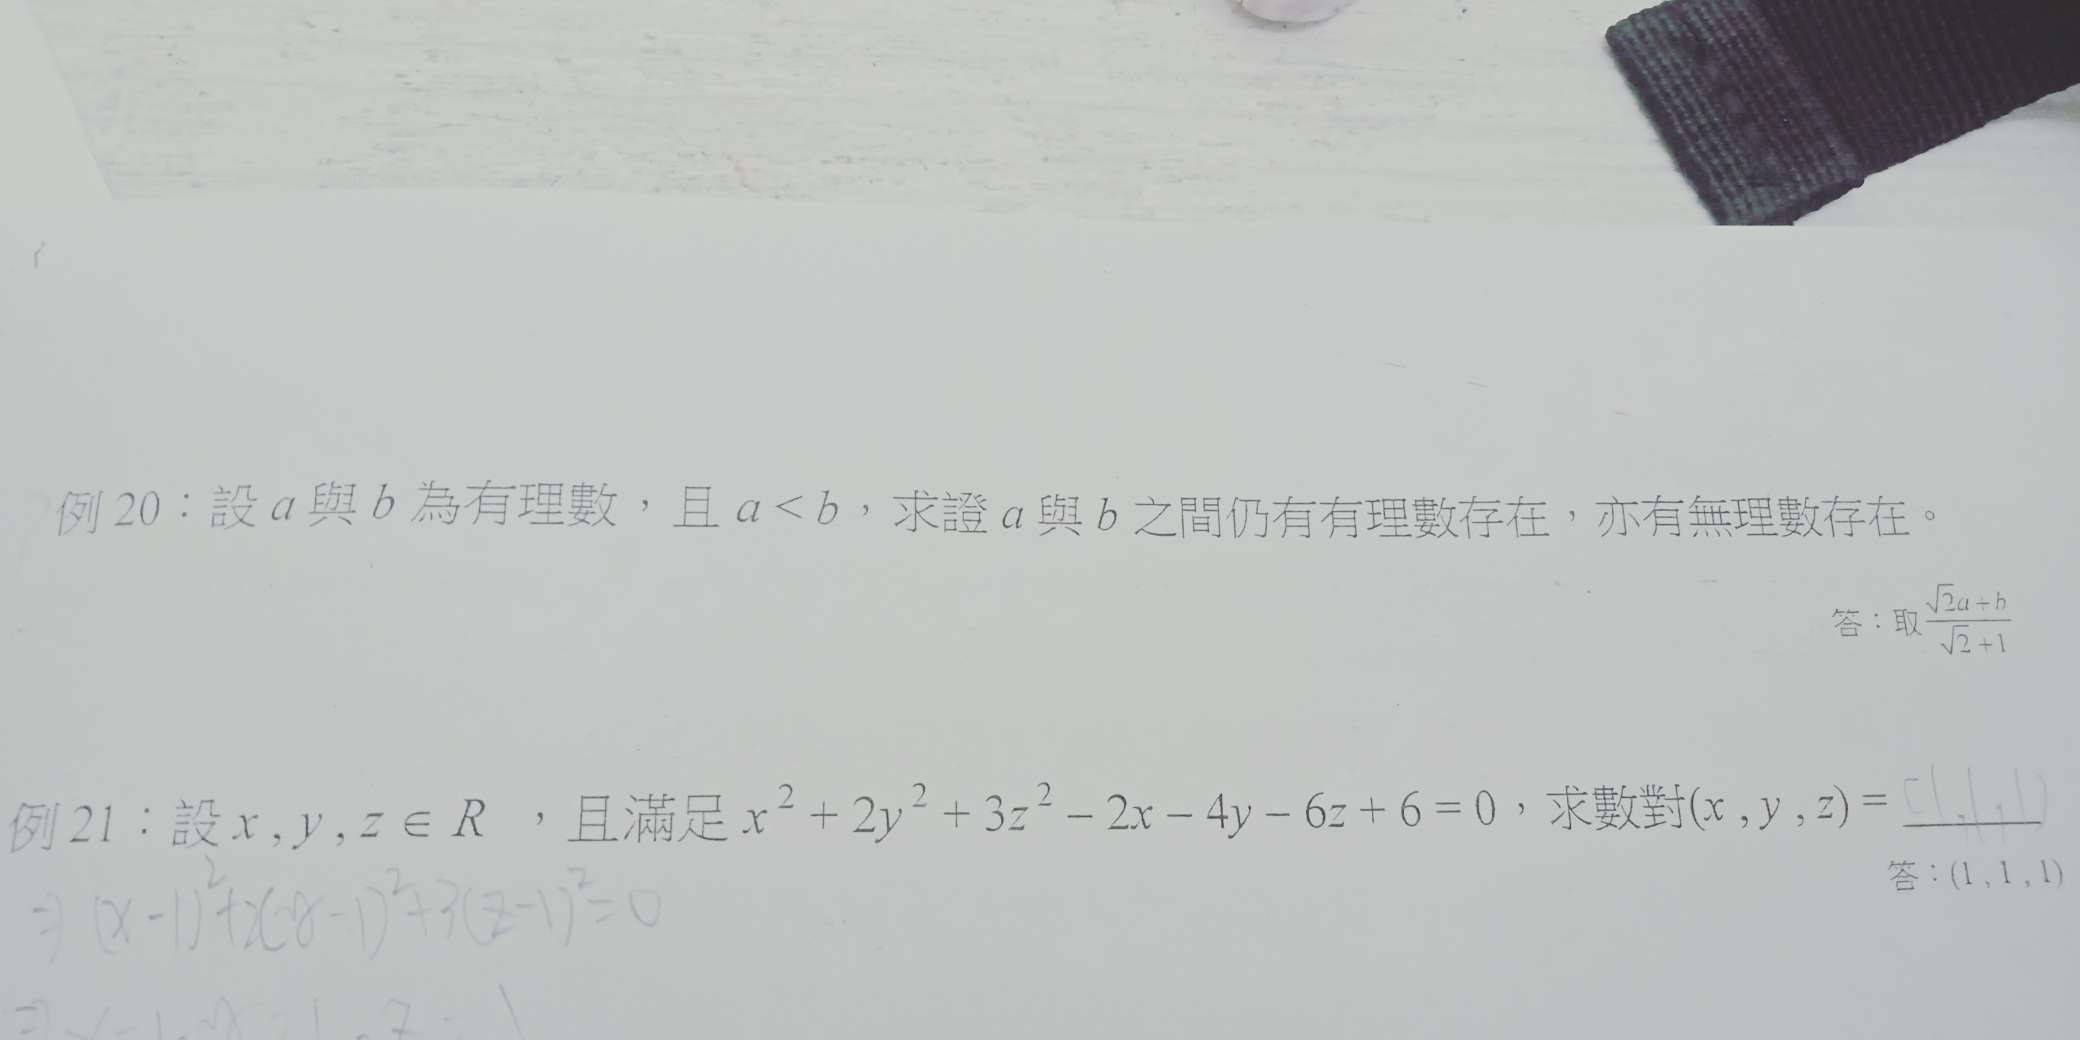 例 20：設 a 與 b 為有理數，且 a < b，求證 a 與 b 之間仍有有理數存在，亦有無理數存在。
答：取 \frac{\sqrt{2}a+b}{\sqrt{2}+1}
例 21：設 x , y , z ∈ R ，且滿足 x² + 2y² + 3z² − 2x − 4y − 6z + 6 = 0，求數對(x , y , z) = (1,1,1)
答：(1 , 1 , 1)
⇒ (x-1)²+2(y-1)²+3(z-1)²=0